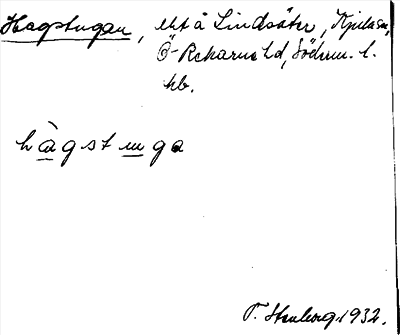 Hagstugan, lht å Lindsäter, Kjula sn,
Ö-Rekarne hd, Söderm. l.
hb.
hàgstuga
T. Stenberg 1932.